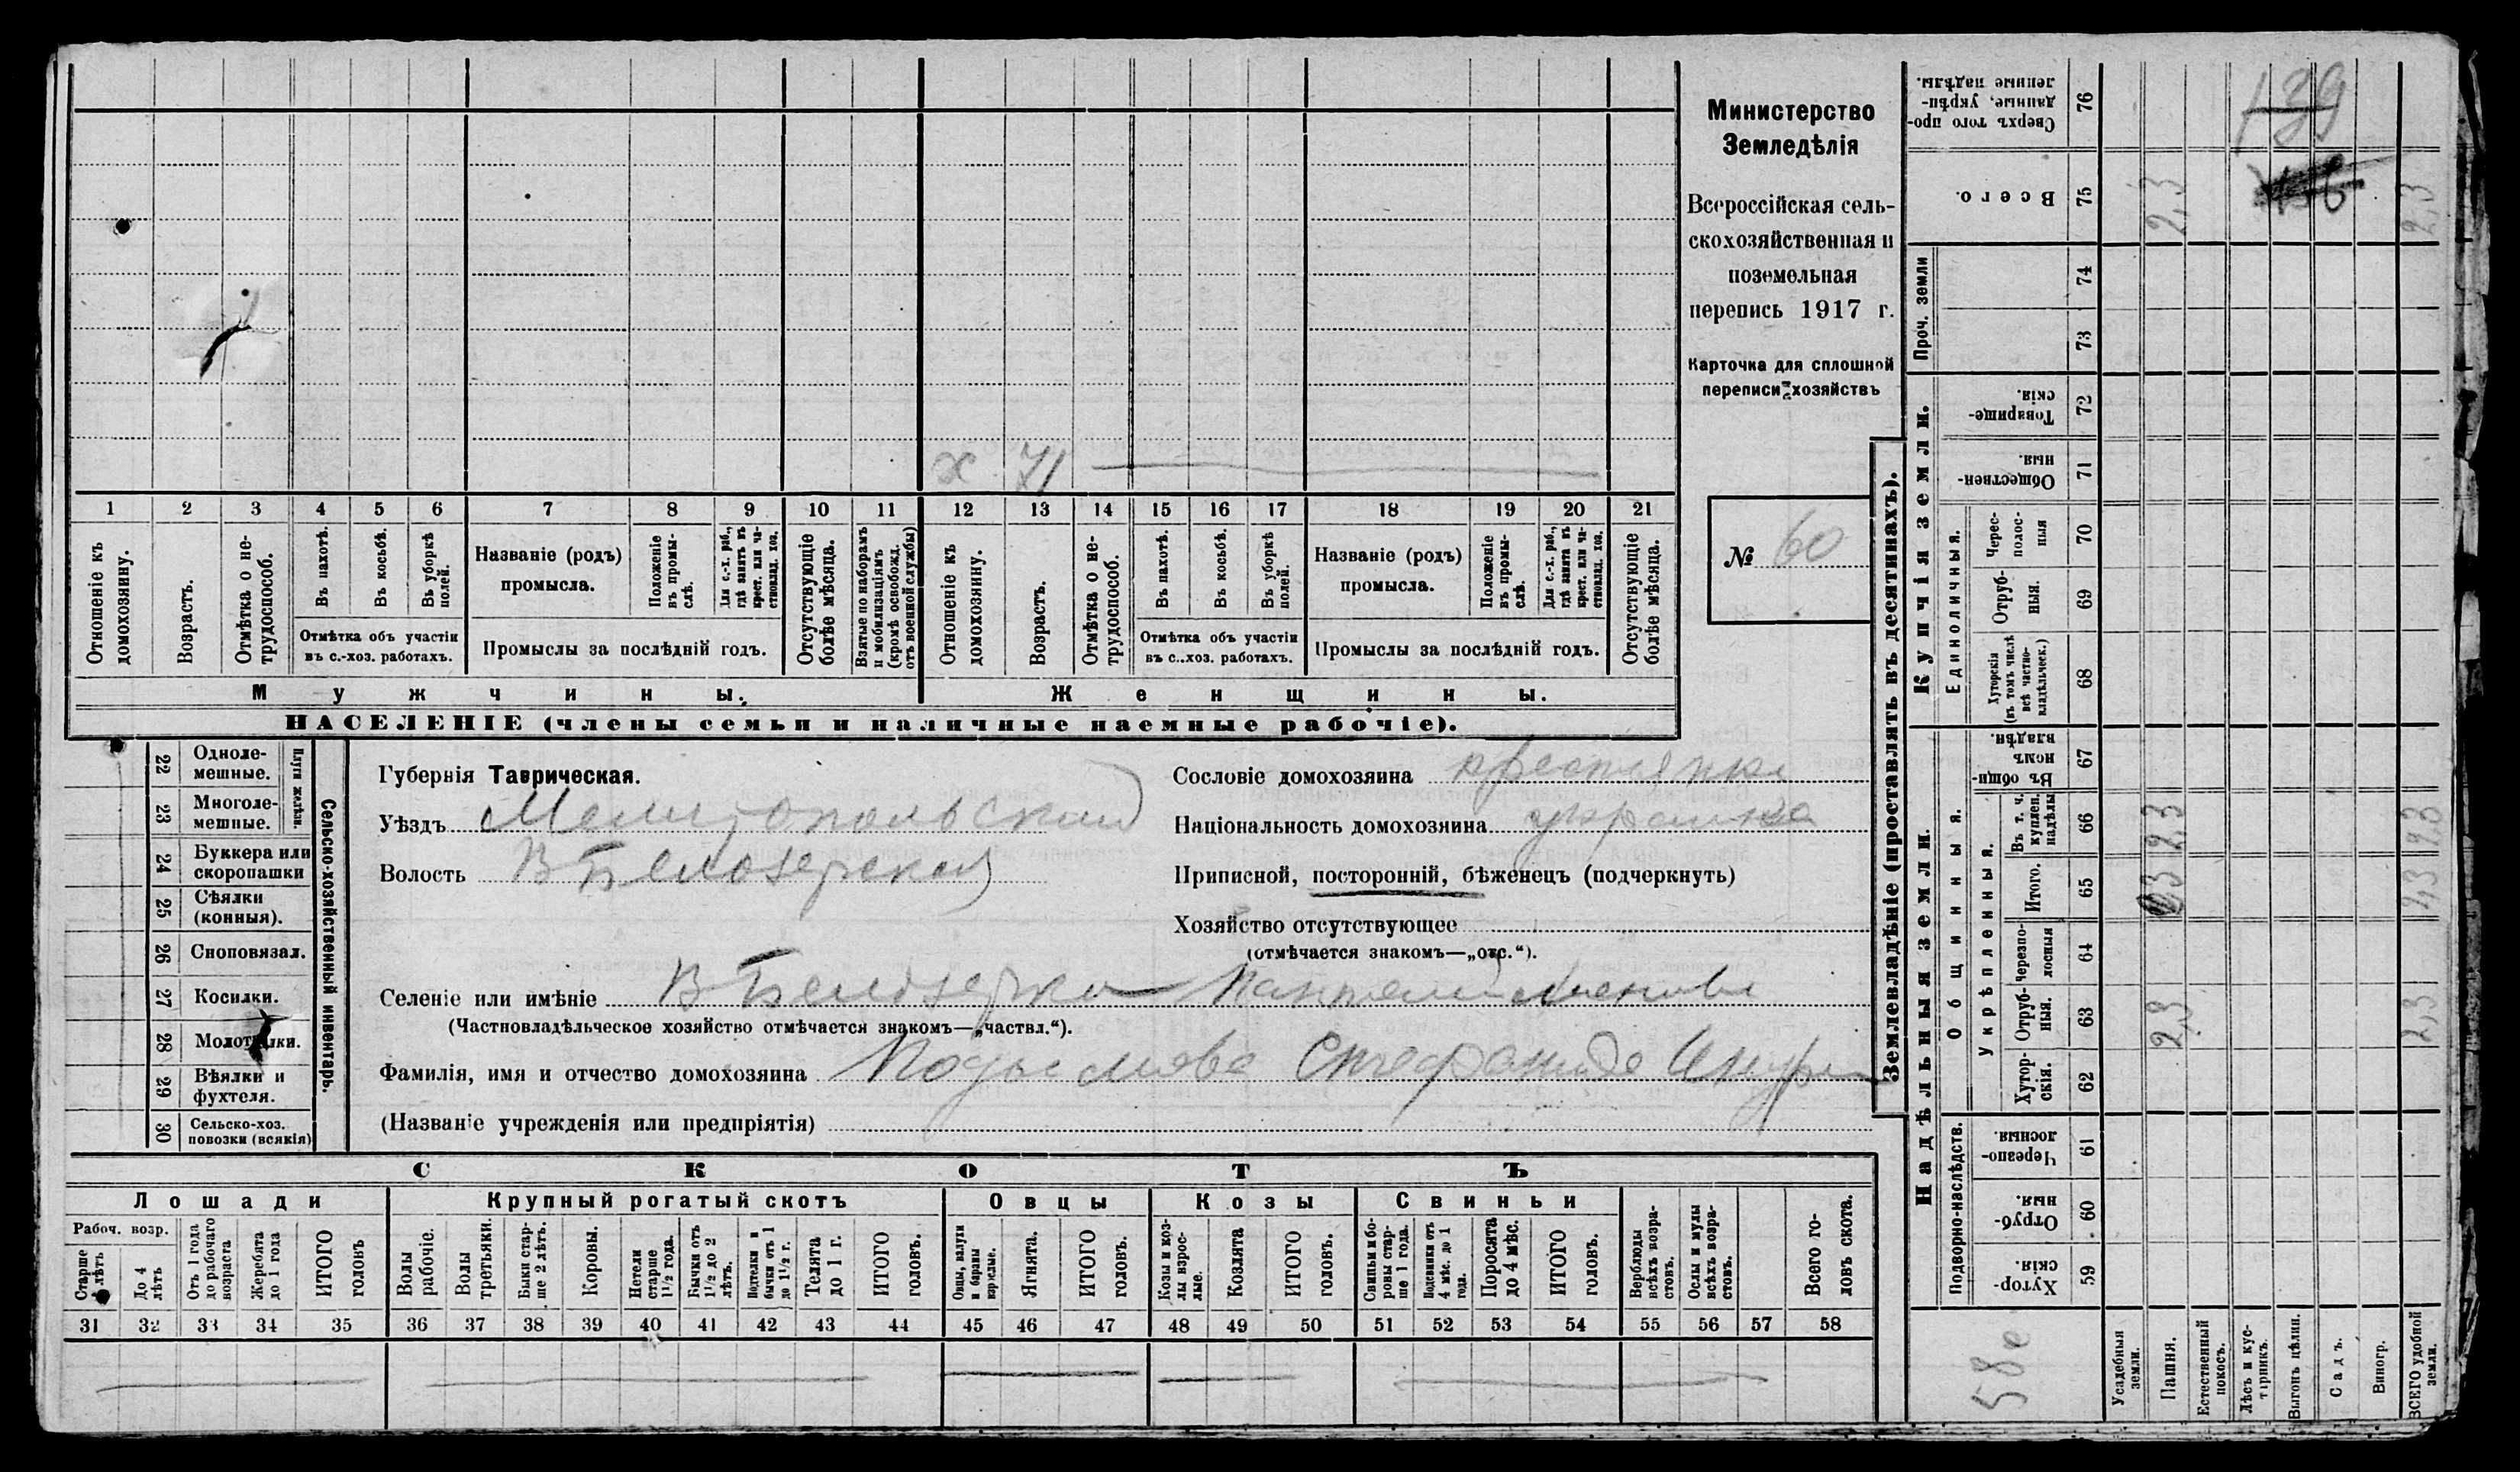 Министерство
Земледѣлія
Всероссійская сель-
скохозяйственная и
поземельная
перепись 1917 г.
Карточка для сплошной
переписи хозяйствъ
№ 60
х 71
1 2 3 4 5 6 7 8 9 10 11 12 13 14 15 16 17 18 19 20 21
Отношеніе къ домохозяину.
Возрастъ.
Отмѣтка о не-трудоспособ.
Въ пахотѣ.
Въ косьбѣ.
Въ уборкѣ полей.
Отмѣтка объ участіи
въ с.-хоз. работахъ.
Названіе (родъ)
промысла.
Положеніе въ промы-слѣ.
Для с.-х. раб., гдѣ занятъ въ крест. или ча-стновлад. хоз.
Промыслы за послѣдній годъ.
Отсутствующіе болѣе мѣсяца.
Взятые по наборамъ и мобилизаціямъ (кромѣ освобожд. отъ военной службы)
Отношеніе къ домохозяину.
Возрастъ.
Отмѣтка о не-трудоспособ.
Въ пахотѣ.
Въ косьбѣ.
Въ уборкѣ полей.
Отмѣтка объ участіи
въ с..хоз. работахъ.
Названіе (родъ)
промысла.
Положеніе въ промы-слѣ.
Для с.-х. раб., гдѣ занятъ въ крест. или ча-стновлад. хоз.
Промыслы за послѣдній годъ.
Отсутствующіе болѣе мѣсяца.
Мужчины.
Женщины.
НАСЕЛЕНІЕ (члены семьи и наличные наемные рабочіе).
Сельско-хозяйственный инвентарь.
Плуги желѣзн.
22 Одноле-мешные.
23 Многоле-мешные.
24 Буккера или скоропашки
25 Сѣялки (конныя).
26 Сноповязал.
27 Косилки.
28 Молотилки.
29 Вѣялки и фухтеля.
30 Сельско-хоз. повозки (всякія)
Губернія Таврическая.
Уѣздъ Мелитопольский
Волость В Белозерская
Сословіе домохозяина крестьянка
Національность домохозяина украинка
Приписной, посторонній, бѣженецъ (подчеркнуть)
Хозяйство отсутствующее
(отмѣчается знакомъ—„отс.“).
Селеніе или имѣніе В Белозерка
(Частновладѣльческое хозяйство отмѣчается знакомъ—„частвл.“).
Фамилія, имя и отчество домохозяина Стефанида
(Названіе учрежденія или предпріятія)
СКОТЪ
Лошади
Крупный рогатый скотъ
Овцы
Козы
Свиньи
Рабоч. возр.
Старше 4 лѣтъ
До 4 лѣтъ
Отъ 1 года до рабочаго возраста
Жеребята до 1 года
ИТОГО головъ
Волы рабочіе.
Волы третьяки.
Быки стар-ше 2 лѣтъ.
Коровы.
Нетели старше 1½ года.
Бычки отъ 1½ до 2 лѣтъ.
Подтелки и бычки отъ 1 до 1½ г.
Телята до 1 г.
ИТОГО головъ.
Овцы, валухи и бараны взрослые.
Ягнята.
ИТОГО головъ.
Козы и коз-лы взрос-лые.
Козлята
ИТОГО головъ.
Свиньи и бо-ровы стар-ше 1 года.
Подсвинки отъ 4 мѣс. до 1 года.
Поросята до 4 мѣс.
ИТОГО головъ.
Верблюды всѣхъ возра-стовъ.
Ослы и мулы всѣхъ возра-стовъ.
Всего го-ловъ скота.
31 32 33 34 35 36 37 38 39 40 41 42 43 44 45 46 47 48 49 50 51 52 53 54 55 56 57 58
Землевладѣніе (проставлять въ десятинахъ).
Надѣльныя земли.
Купчія земли.
Проч. земли
Подворно-наслѣдств.
Общинныя.
Укрѣпленныя.
Единоличныя.
Сверхъ того про-данные, укрѣп-ленные надѣлы. 76
Всего. 75 2,3 2,3
74
73
Товарище-скія. 72
Обществен-ныя. 71
Черес-полос-ныя 70
Отруб-ныя. 69
Хуторскія (въ томъ числѣ всѣ частно-владѣльческ.) 68
Въ общи-номъ владѣн. 67
Въ т. ч. куплен. надѣлы 66 2,3 2,3
Итого. 65
Черезпо-лосныя 64
Отруб-ныя. 63 2,3 2,3
Хутор-скія. 62
Черезпо-лосныя. 61
Отруб-ныя. 60
Хутор-скія. 59
139
Усадебныя земли.
Пашня.
Естественный покосъ.
Лѣсъ и кус-тарникъ.
Выгонъ цѣлин.
Садъ.
Виногр.
ВСЕГО удобной земли.